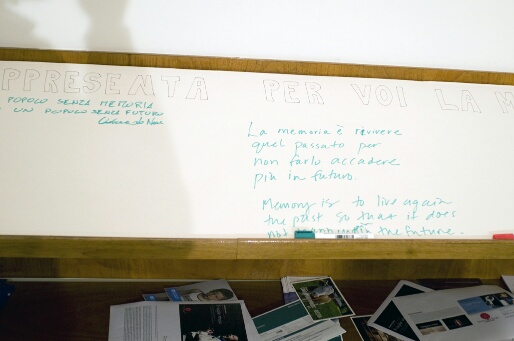 PPRESENTA PER VOI LA M
POPOLO SENZA MEMORIA
UN POPOLO SENZA FUTURO
La memoria è rivivere
quel passato per
non farlo accadere
più in futuro.
Memory is to live again
the past so that it does
not in the future.